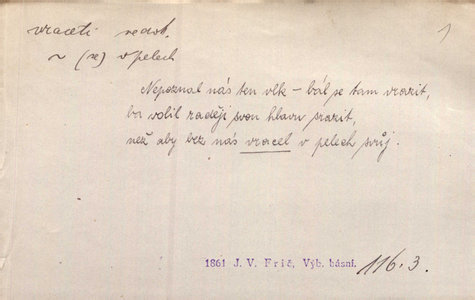 vraceti nedok.
~ (se) v pelech
1
Nepoznal nás ten vlk – bál se tam vrazit,
ba volil raději svou hlavu srazit,
než aby bez nás vracel v pelech svůj.
1861 J. V. Frič, Výb. básní. 116.3.